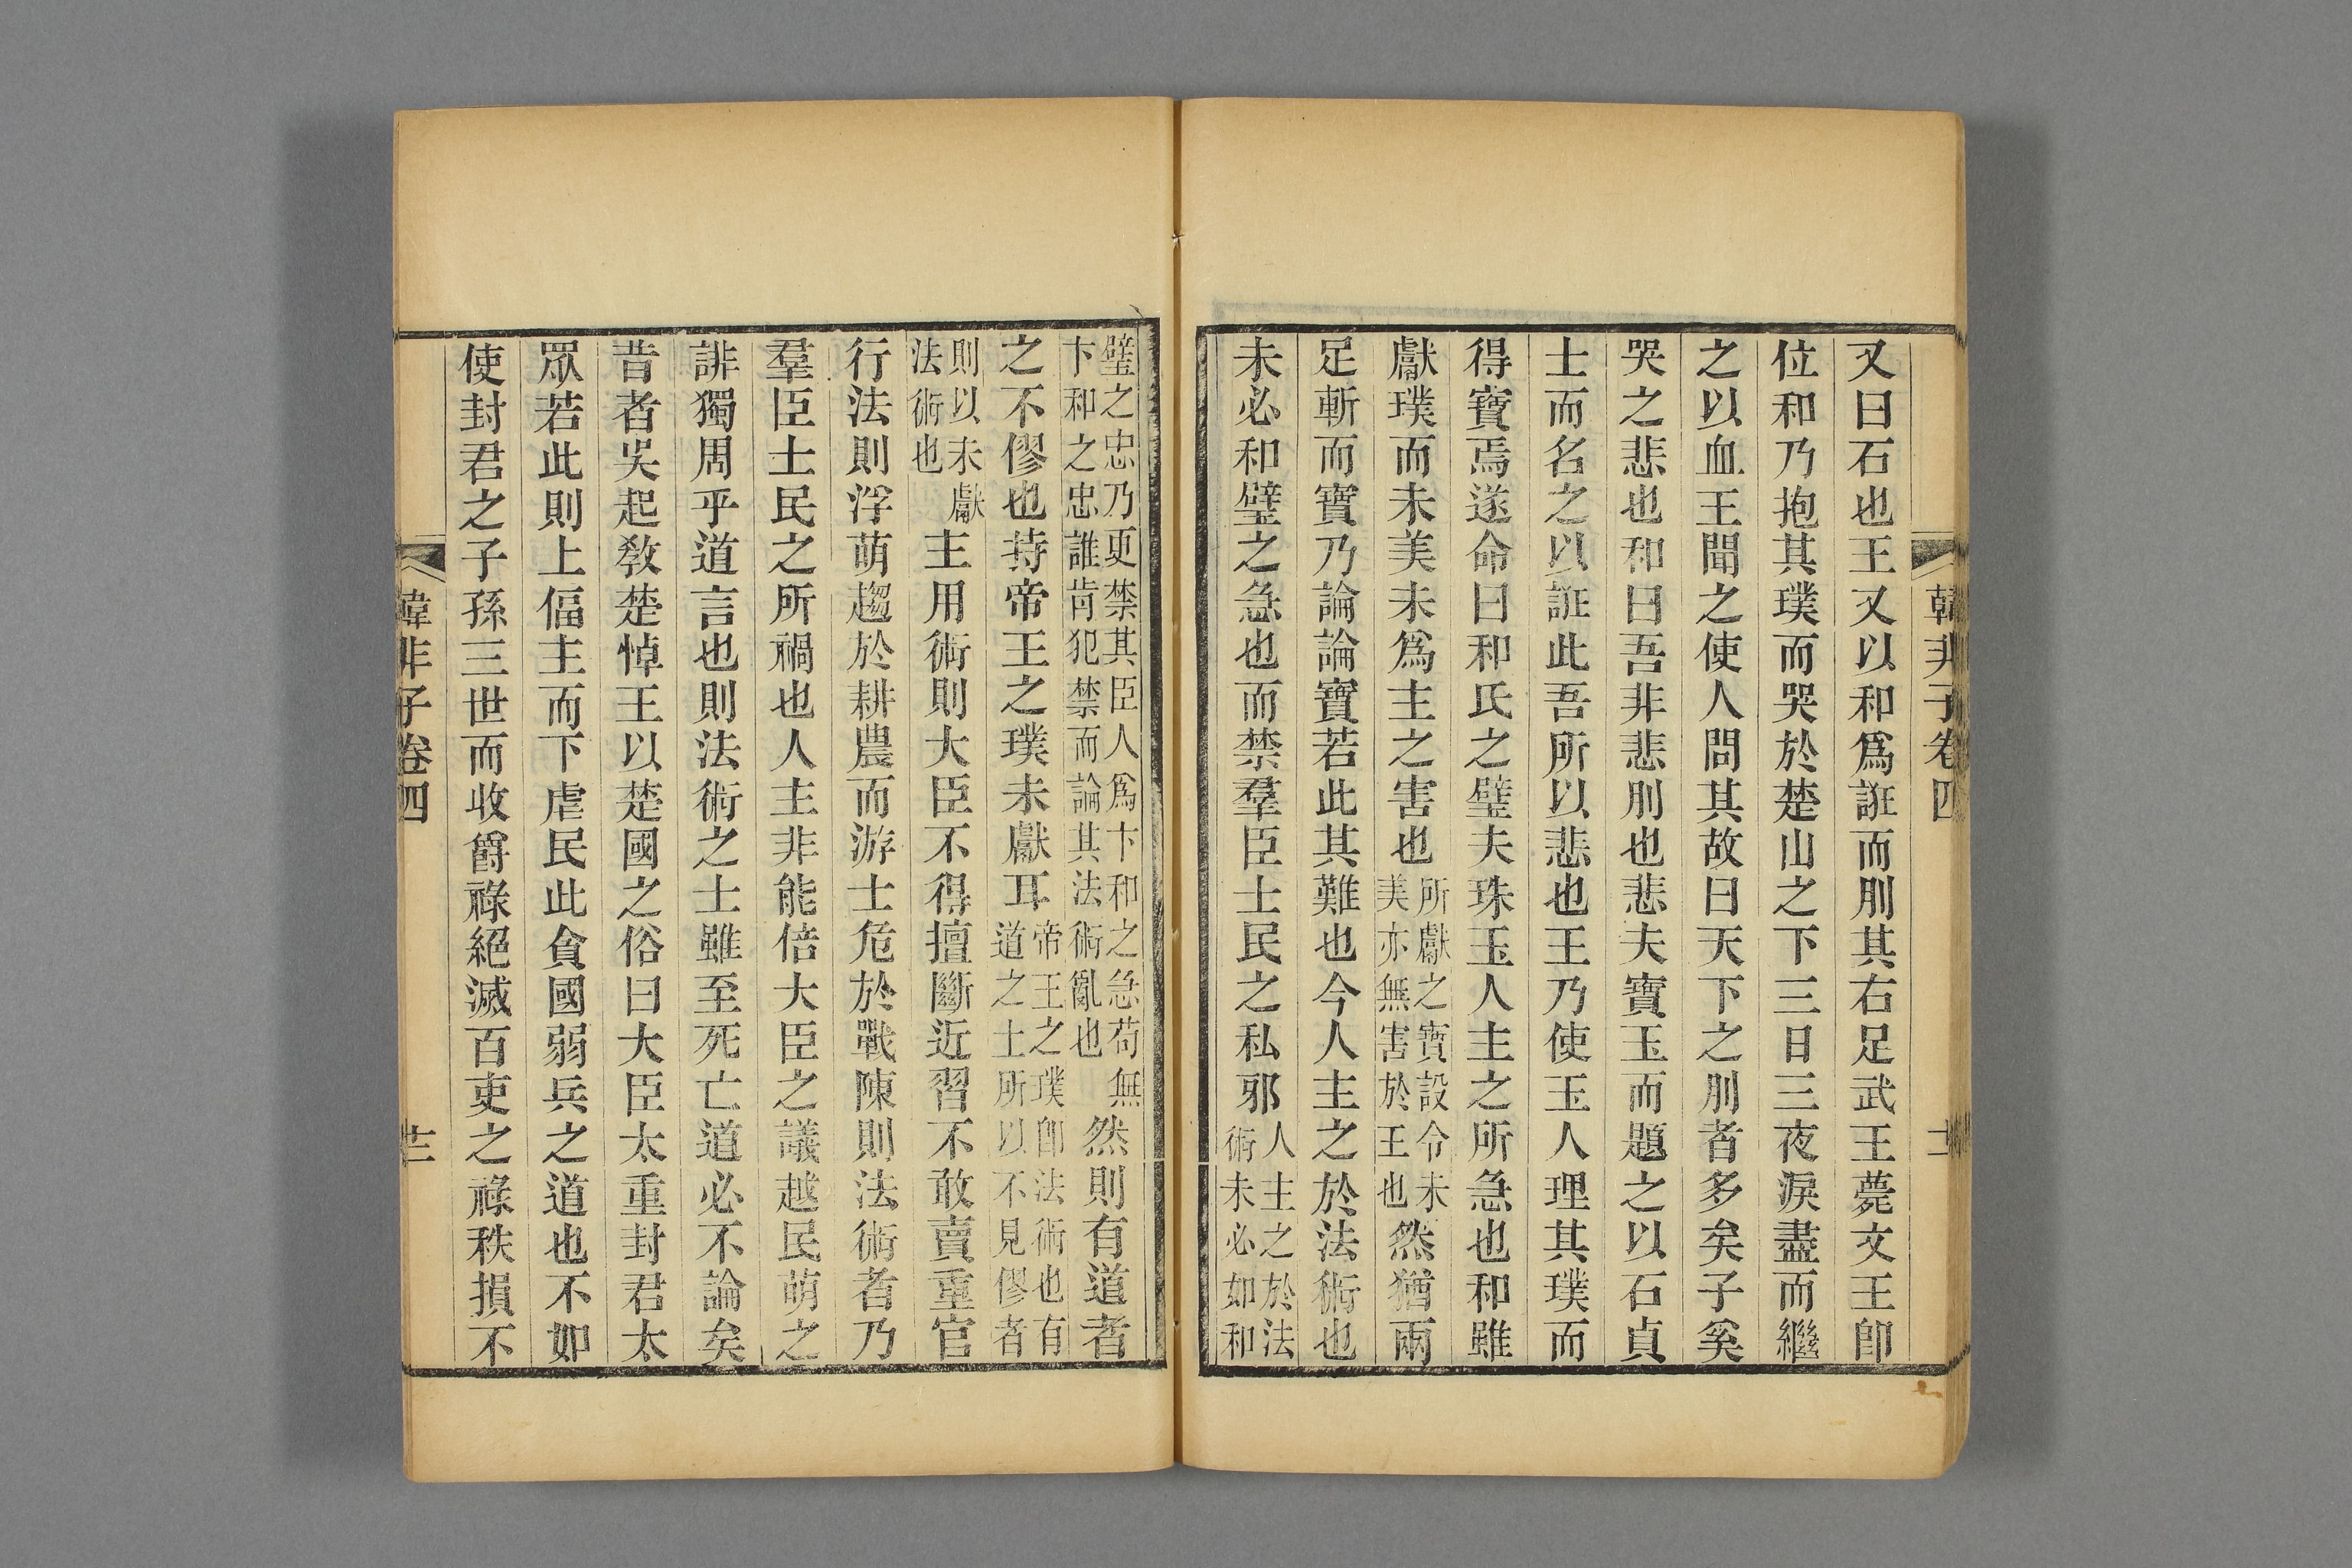 韓非子卷四
又曰石也王又以和爲誑而刖其右足武王薨文王卽
位和乃抱其璞而哭於楚山之下三日三夜淚盡而繼
之以血王聞之使人問其故曰天下之刖者多矣子奚
哭之悲也和曰吾非悲刖也悲夫寶玉而題之以石貞
士而名之以誑此吾所以悲也王乃使玉人理其璞而
得寶焉遂命曰和氏之璧夫珠玉人主之所急也和雖
獻璞而未美未爲主之害也所獻之寶設令未美亦無害於王也然猶兩
足斬而寶乃論論寶若此其難也今人主之於法術也
未必和璧之急也而禁羣臣士民之私邪人主之於法術未必如和
璧之忠乃更禁其臣人爲卞和之急苟無卞和之忠誰肯犯禁而論其法術亂也然則有道者
之不僇也持帝王之璞未獻耳帝王之璞卽法術也有道之士所以不見僇者
則以未獻法術也主用術則大臣不得擅斷近習不敢賣重官
行法則浮萌趨於耕農而游士危於戰陳則法術者乃
羣臣士民之所禍也人主非能倍大臣之議越民萌之
誹獨周乎道言也則法術之士雖至死亡道必不論矣
昔者吳起敎楚悼王以楚國之俗曰大臣太重封君太
眾若此則上偪主而下虐民此貪國弱兵之道也不如
使封君之子孫三世而收爵祿絕滅百吏之祿秩損不
韓非子卷四